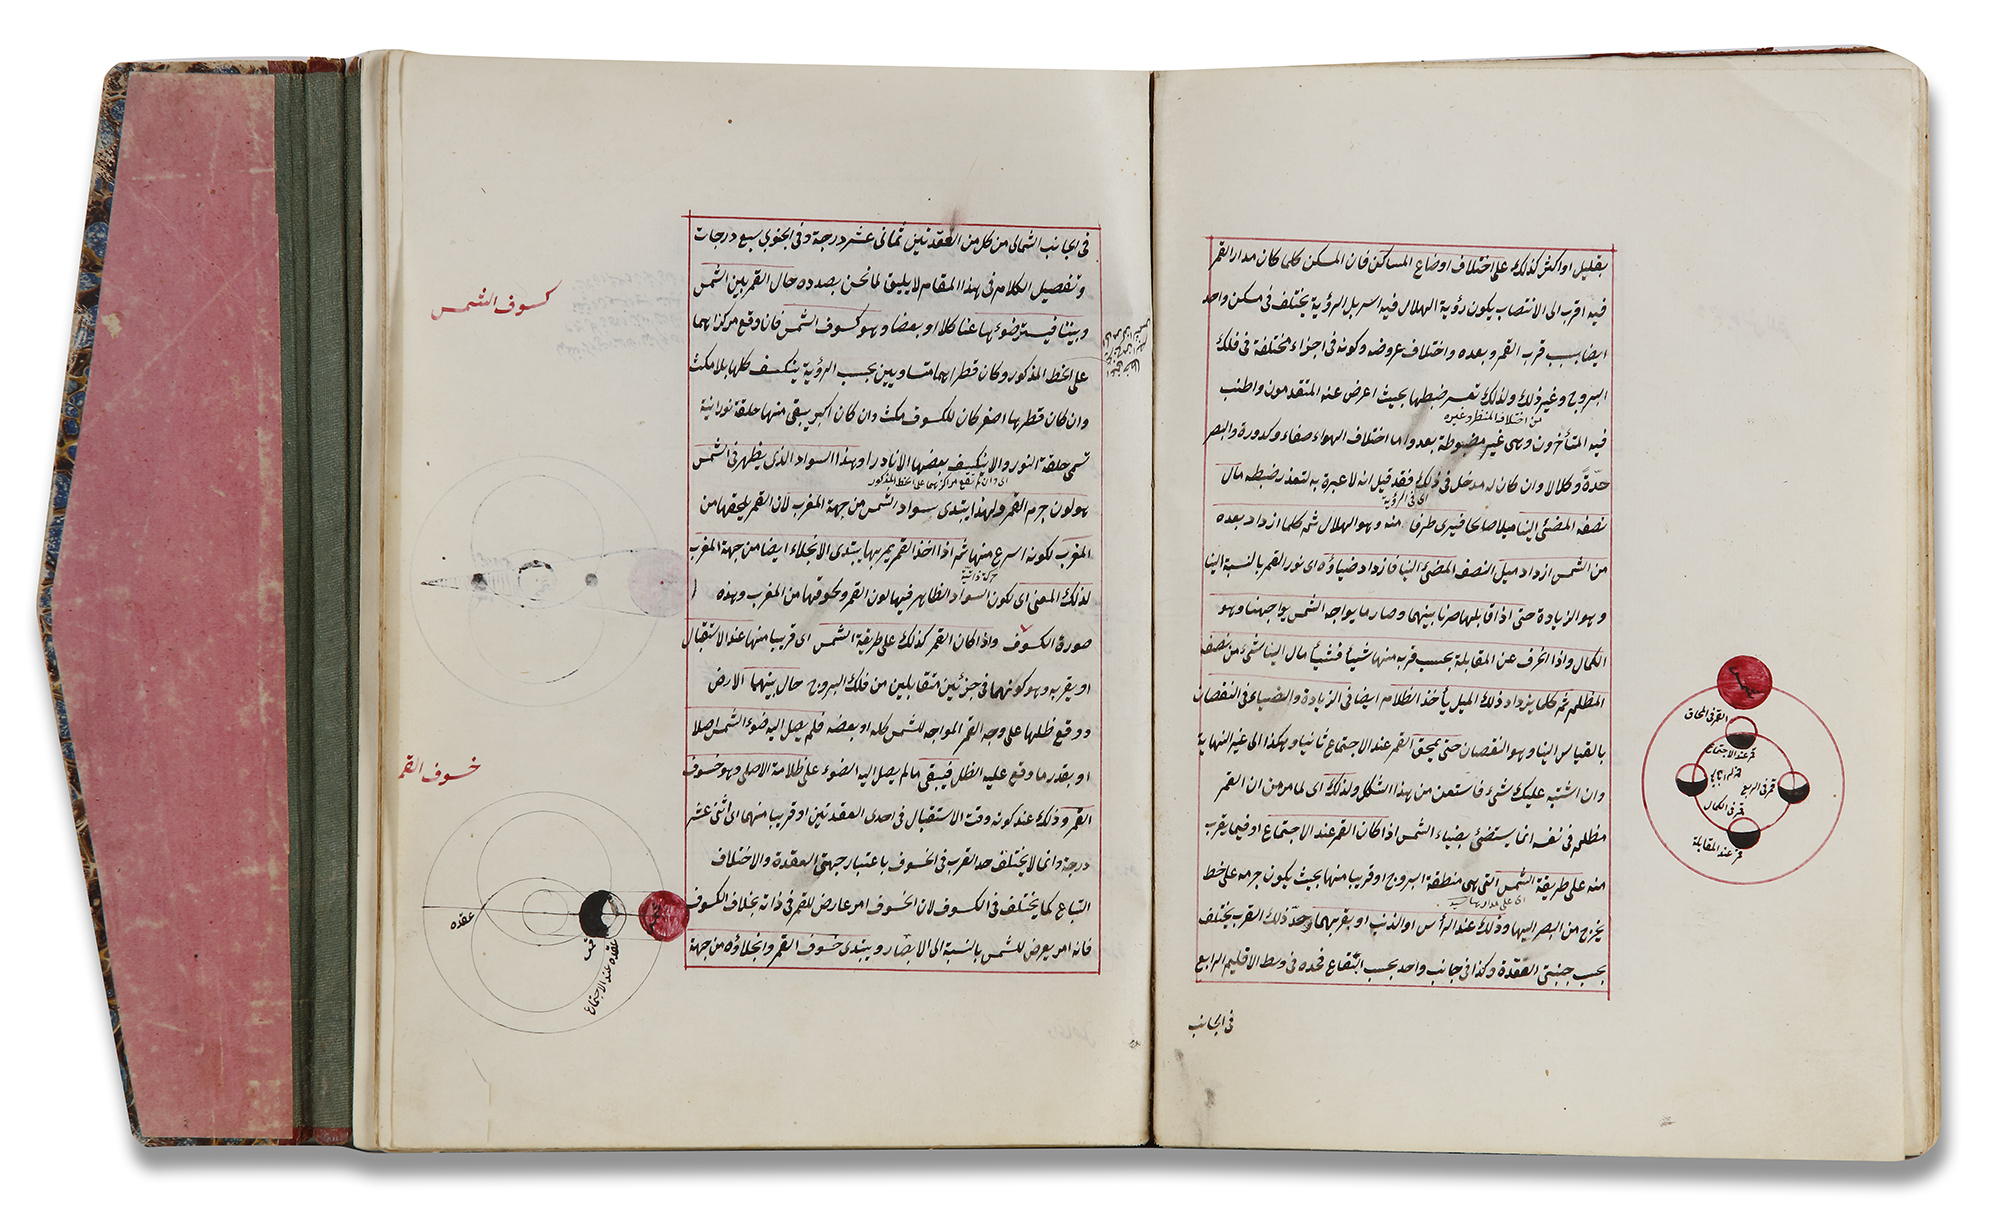 بقليل او اكثر كذلك على اختلاف اوضاع المساكن فان المسكن كلما كان مدار القمر
فيه اقرب الى الانتصاب يكون رؤية الهلال فيه اسهل بل الرؤية يختلف فى مسكن واحد
ايضا بسبب قرب القمر وبعده واختلاف عروضه وكونه فى اجزاء مختلفة فى فلك
البروج وغير ذلك ولذلك تعسر ضبطها بحيث اعرض عنه المتقدمون واطنب
من اختلاف المنظر وغيره
فيه المتأخرون وهى غير مضبوطة بعد واما اختلاف الهواء صفاء وكدورة والبصر
حدّة وكلالا وان كان له مدخل فى ذلك فقد قيل انه لا عبرة به لتعذر ضبطه مال
اى فى الرؤية
نصفه المضئ الينا ميلا صالحا فيرى طرفا منه وهو الهلال ثم كلما ازداد بعده
من الشمس ازداد ميل النصف المضئ الينا فازداد ضياؤه اى نور القمر بالنسبة الينا
وهو الزيادة حتى اذا قابلها صرنا بينهما وصار ما يواجه الشمس يواجهنا وهو
الكمال واذا انحرف عن المقابلة بحسب قربه منها شيئا فشيئا مال الينا شئ من نصفه
المظلم ثم كلما يزداد ذلك الميل يأخذ الظلام ايضا فى الزيادة والضياء فى النقصان
بالقياس الينا وهو النقصان حتى يمحق القمر عند الاجتماع ثانيا وهكذا الى غير النهاية
وان اشتبه عليك شئ فاستعن من هذا الشكل ولذلك اى لما مر من ان القمر
مظلم فى نفسه انما يستضئ بضياء الشمس اذا كان القمر عند الاجتماع او فيما يقرب
منه على طريقة الشمس التى هى منطقة البروج او قريبا منها بحيث يكون جرمه على خط
يخرج من البصر اليها وذلك عند الرأس او الذنب او بقربهما وحدّ ذلك القرب يختلف
بحسب جنبتى العقدة وكذا فى جانب واحد بحسب البقاع فحده فى وسط الاقليم الرابع
فى الجانب
شمس
القمر فى المحاق
قمر عند الاجتماع
قمر فى الربيع
قمر فى الكمال
قمر عند المقابلة
فى الجانب الشمالى من كل من العقدتين ثمانى عشر درجة وفى الجنوبى سبع درجات
وتفصيل الكلام فى هذا المقام لا يليق لما نحن بصدده حال القمر بين الشمس
وبيننا فيستر ضوءها عنا كلا او بعضا وهو كسوف الشمس فان وقع مركزاهما
على الخط المذكور وكان قطراهما متساويين بحسب الرؤية ينكسف كلها بلا مكث
وان كان قطرها اصغر كان للكسوف مكث وان كان اكبر يبقى منها حلقة نورانية
تسمى حلقة النور والا ينكسف بعضها الا نادرا وهذا السواد الذى يظهر فى الشمس
اى وان لم تقع مراكزهما على الخط المذكور
هو لون جرم القمر ولهذا يبتدى سواد الشمس من جهة المغرب لان القمر يلحقها من
المغرب لكونه اسرع منها ثم اذا اخذ القمر يمر بها يبتدى الانجلاء ايضا من جهة المغرب
حركة ذاتية
لذلك المعنى اى لكون السواد الظاهر فيها لون القمر ولحوقها من المغرب وهذه
صورة الكسوف واذا كان القمر كذلك على طريقة الشمس اى قريبا منها عند الاستقبال
او بقربه وهو كونهما فى جزئين متقابلين من فلك البروج حال بينهما الارض
ووقع ظلها على وجه القمر المواجه للشمس كله او بعضه فلم يصل اليه ضوء الشمس اصلا
او بقدر ما وقع عليه الظل فيبقى ما لم يصل اليه الضوء على ظلامه الاصلى وهو خسوف
القمر وذلك عند كونه وقت الاستقبال فى احدى العقدتين او قريبا منهما اى اثنى عشر
درجة وانما لا يختلف حد القرب فى الخسوف باعتبار جهتى العقدة والاختلاف
البقاع كما يختلف فى الكسوف لان الخسوف امر عارض للقمر فى ذاته بخلاف الكسوف
فانه امر يعرض للشمس بالنسبة الى الابصار ويبتدى خسوف القمر وانجلاؤه من جهة
كسوف الشمس
خسوف القمر
عقده
عقده عند الاجتماع